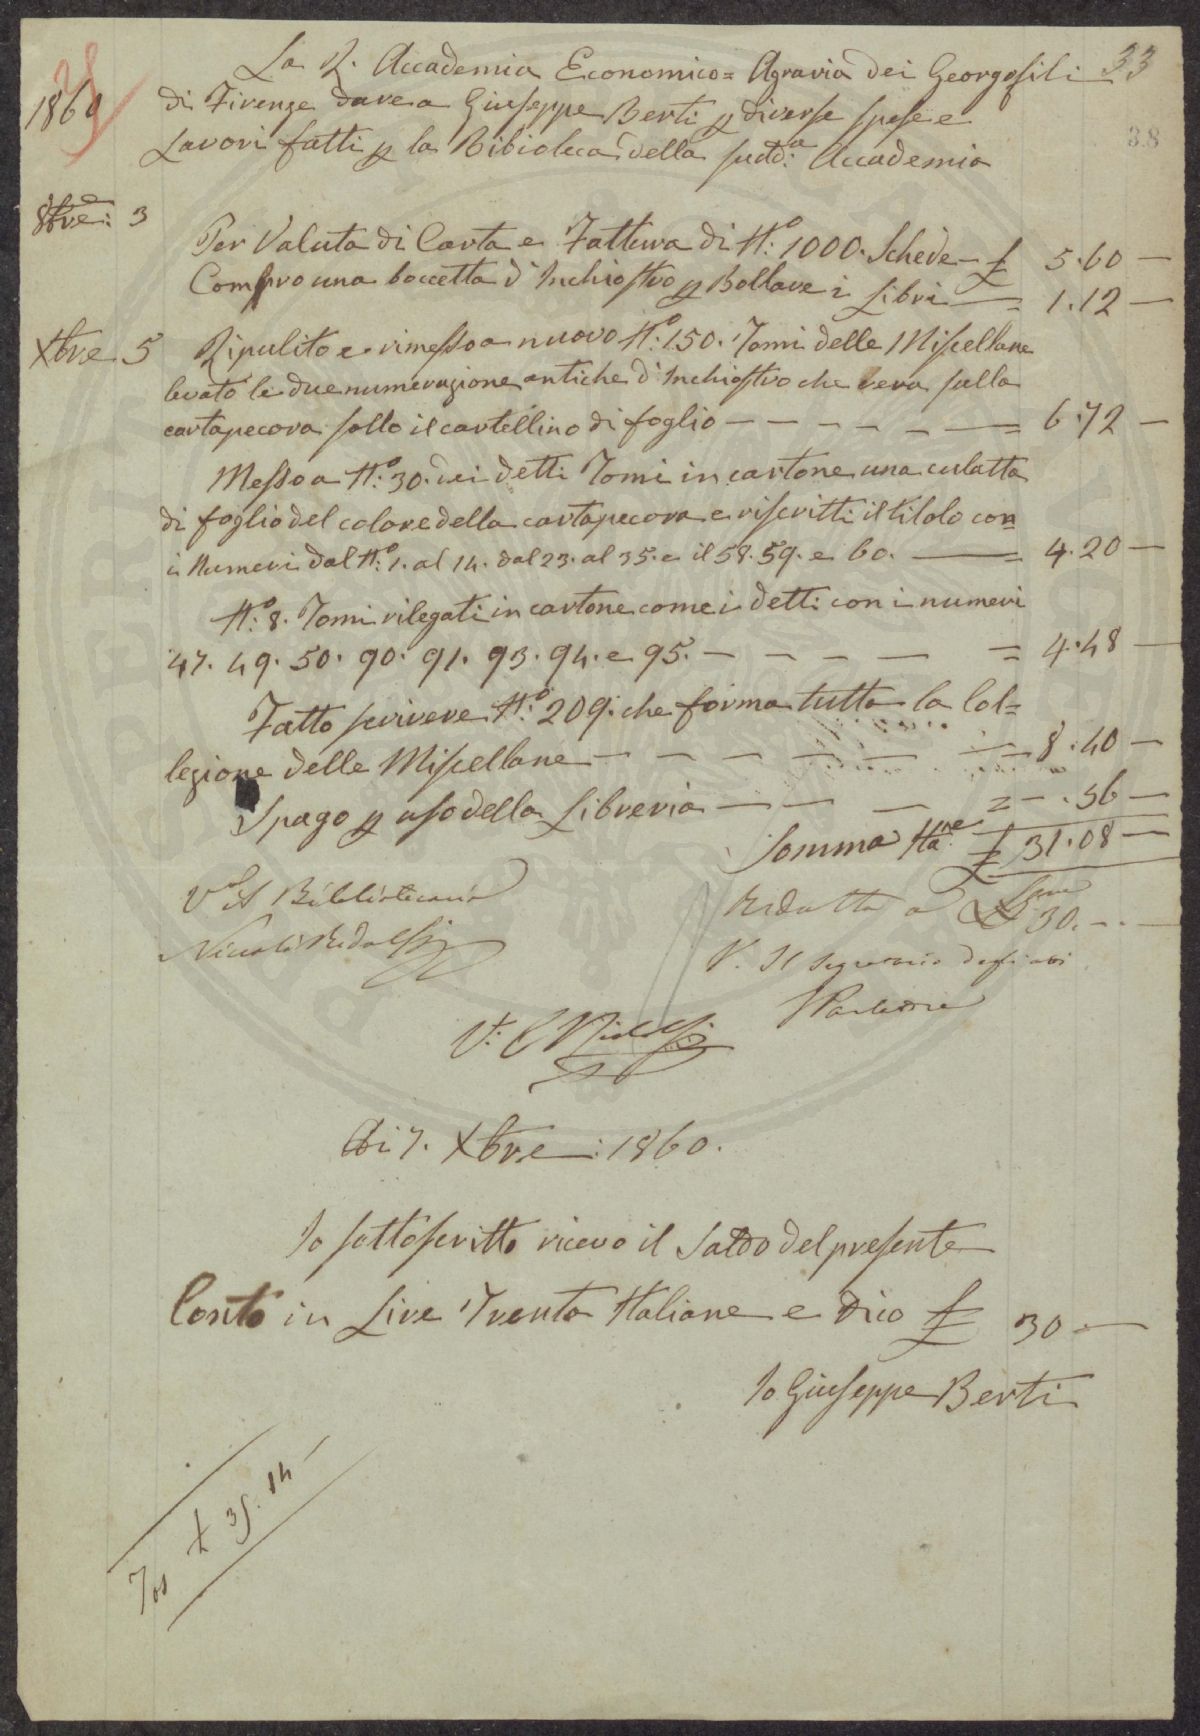 33
38
1860
La R. Accademia Economico= Agraria dei Georgofili
di Firenze dare a Giuseppe Berti p diverse spese e
Lavori fatti p la Bibioteca della sudd:a Accademia
8bre: 3
Per Valuta di Carta e Fattura di No: 1000. Schede £ 5.60
Compro una boccetta d'Inchiostro p Bollare i Libri = 1.12
Xbre 5 Ripulito e rimesso a nuovo No: 150. Tomi delle Miscellane
levato le due numerazione antiche d'Inchiostro che vera sulla
cartapecora sotto il cartellino di foglio = 6.72
Messo a No: 30. dei detti Tomi in cartone una culatta
di foglio del colore della cartapecora e riscritti il titolo con
i Numeri dal No: 1. al 14. dal 23. al 35. e il 58. 59. e 60. = 4.20
No: 8. Tomi rilegati in cartone come i detti con i numeri
47. 49. 50. 90. 91. 93. 94. e 95. = 4.48
Fatto scrivere No: 209. che forma tutta la Col=
lezione delle Miscellane 8.40
Spago p uso della Libreria = .56
Somma Itane £ 31.08
Ridotta a 30.
Vo Il Bibliotecario
Niccolò Ridolfi
V. Il Segretario degli atti
Vo: Ridolfi
Di 7. Xbre: 1860.
Io sottoscritto ricevo il Saldo del presente
Conto in Lire Trenta Italiane e dico £ 30
Io Giuseppe Berti
35. 14